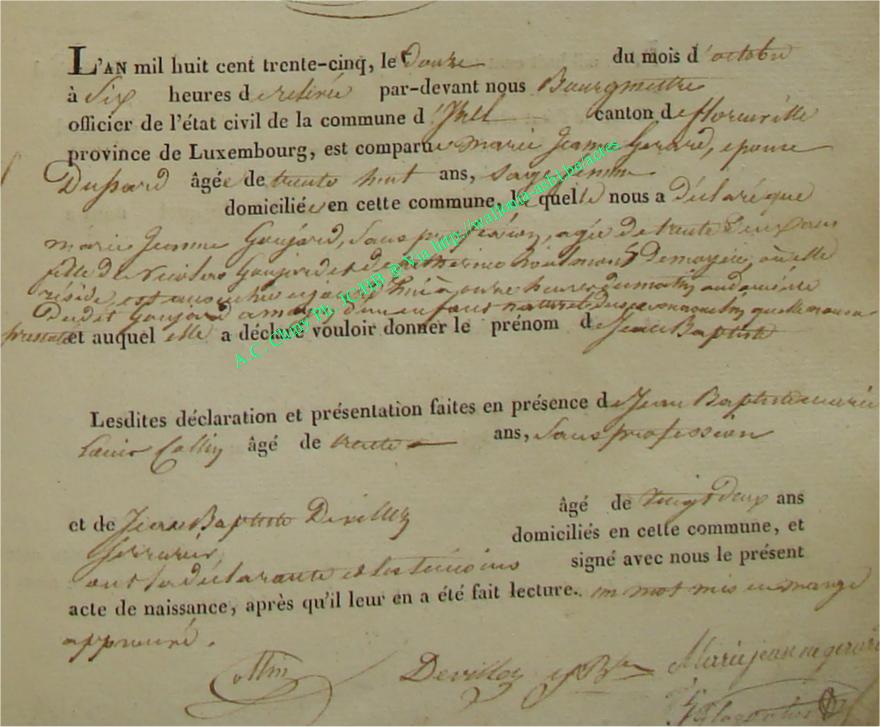 L'AN mil huit cent trente-cinq, le Douze du mois d'octobre
à Six heures de relevée par-devant nous Bourgmestre
officier de l'état civil de la commune d'Izel canton de florenville
province de Luxembourg, est comparue marie Jeanne Gerard, epouse
Dussard âgée de trente huit ans, Sage femme
domiciliée en cette commune, laquelle nous a Déclaré que
marie Jeanne Goujard, Sans profession, agée de trente Deux ans
fille de Nicolas Goujard et de Catherine, ou elle
réside, est accouchée aujourd'hui à onze heures du matin au domicile
Dudit Goujard d'un enfant naturel du sexe masculin, quelle nous a
présenté et auquel elle a déclaré vouloir donner le prénom de Jean Baptiste
Lesdites déclaration et présentation faites en présence de Jean Baptiste marie
Louis Collin âgé de trente ans, Sans profession
et de Jean Baptiste Devillez âgé de vingt deux ans
Serrurier, domiciliés en cette commune, et
ont la déclarante et les témoins signé avec nous le présent
acte de naissance, après qu'il leur en a été fait lecture. un mot mis en marge
approuvé.
Collin Devillez J Bte Marie jeanne gerard
A.C. Chiny Ph. JCHB © Via http://wallonia-anbl.be/actes